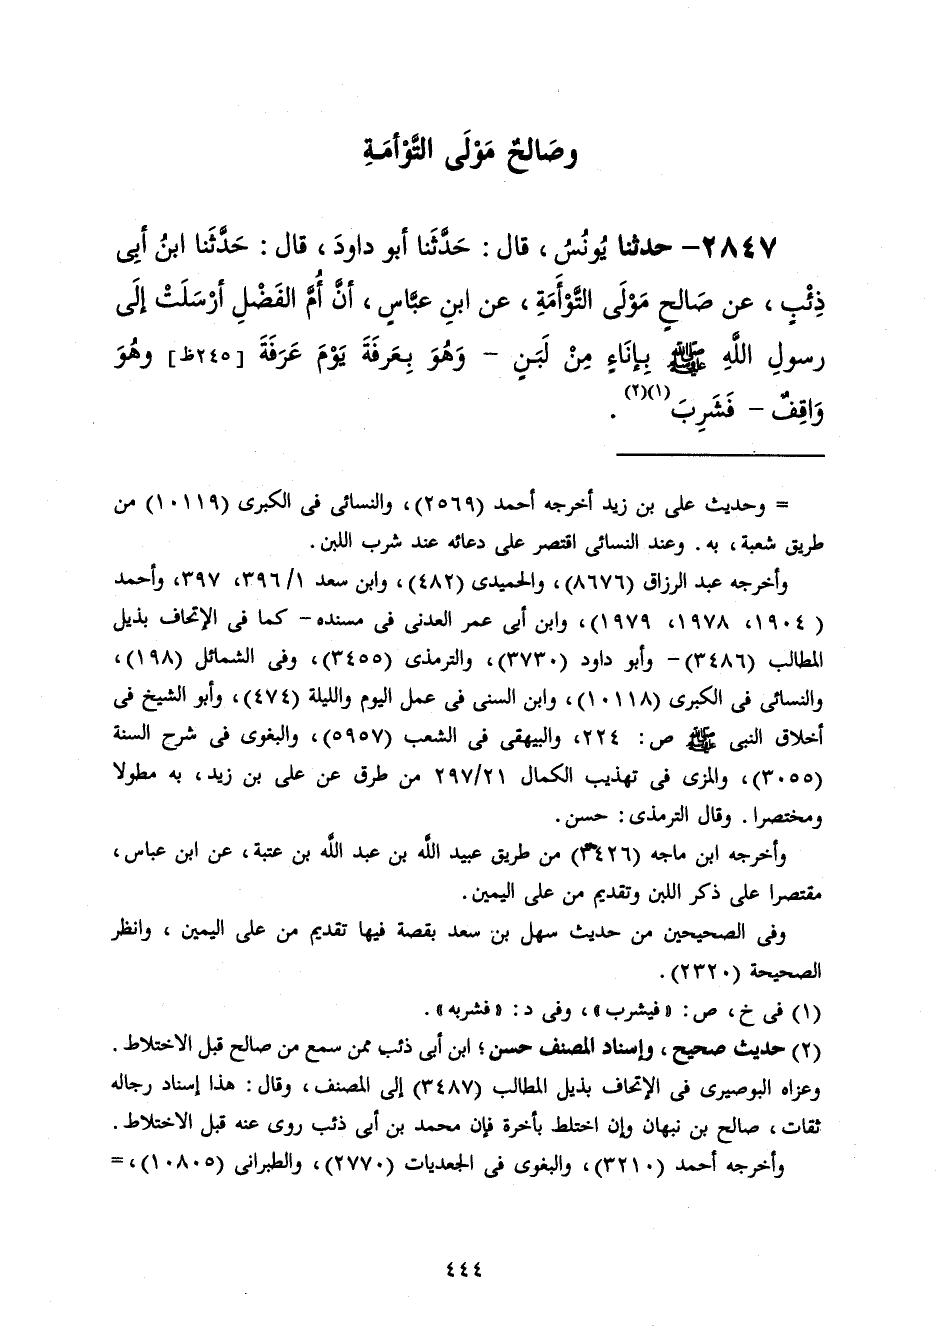 وصَالحٌ مَوْلَى التَّوْأمَةِ
٢٨٤٧- حدثنا يُونُسُ ، قال : حَدَّثَنا أبو داودَ ، قال : حَدَّثَنا ابنُ أبِى
ذِئْبٍ ، عن صَالحٍ مَوْلَى التَّوْأَمَةِ ، عن ابنِ عبَّاسٍ ، أنَّ أُمَّ الفَضْلِ أرْسَلَتْ إلَى
رسولِ اللَّهِ ﷺ بِإنَاءٍ مِنْ لَبَنٍ - وَهُوَ بِعَرفَةَ يَوْمَ عَرَفَةَ [٢٤٥ظ] وهُوَ
وَاقِفٌ - فَشَرِبَ (١)(٢) .
= وحديث على بن زيد أخرجه أحمد (٢٥٦٩)، والنسائى فى الكبرى (١٠١١٩) من
طريق شعبة، به. وعند النسائى اقتصر على دعائه عند شرب اللبن.
وأخرجه عبد الرزاق (٨٦٧٦)، والحميدى (٤٨٢)، وابن سعد ١/ ٣٩٦، ٣٩٧، وأحمد
(١٩٠٤، ١٩٧٨، ١٩٧٩)، وابن أبى عمر العدنى فى مسنده - كما فى الإتحاف بذيل
المطالب (٣٤٨٦) - وأبو داود (٣٧٣٠)، والترمذى (٣٤٥٥)، وفى الشمائل (١٩٨)،
والنسائى فى الكبرى (١٠١١٨)، وابن السنى فى عمل اليوم والليلة (٤٧٤)، وأبو الشيخ فى
أخلاق النبى ﷺ ص: ٢٢٤، والبيهقى فى الشعب (٥٩٥٧)، والبغوى فى شرح السنة
(٣٠٥٥)، والمزى فى تهذيب الكمال ٢٩٧/٢١ من طرق عن على بن زيد، به مطولا
ومختصرا. وقال الترمذى: حسن.
وأخرجه ابن ماجه (٣٤٢٦) من طريق عبيد اللَّه بن عبد اللَّه بن عتبة، عن ابن عباس،
مقتصرا على ذكر اللبن وتقديم من على اليمين.
وفى الصحيحين من حديث سهل بن سعد بقصة فيها تقديم من على اليمين ، وانظر
الصحيحة (٢٣٢٠).
(١) فى خ، ص: «فيشرب»، وفى د: «فشربه».
(٢) حديث صحيح، وإسناد المصنف حسن؛ ابن أبى ذئب ممن سمع من صالح قبل الاختلاط.
وعزاه البوصيرى فى الإتحاف بذيل المطالب (٣٤٨٧) إلى المصنف، وقال: هذا إسناد رجاله
ثقات، صالح بن نبهان وإن اختلط بأخرة فإن محمد بن أبى ذئب روى عنه قبل الاختلاط.
وأخرجه أحمد (٣٢١٠)، والبغوى فى الجعديات (٢٧٧٠)، والطبرانى (١٠٨٠٥)، =
٤٤٤